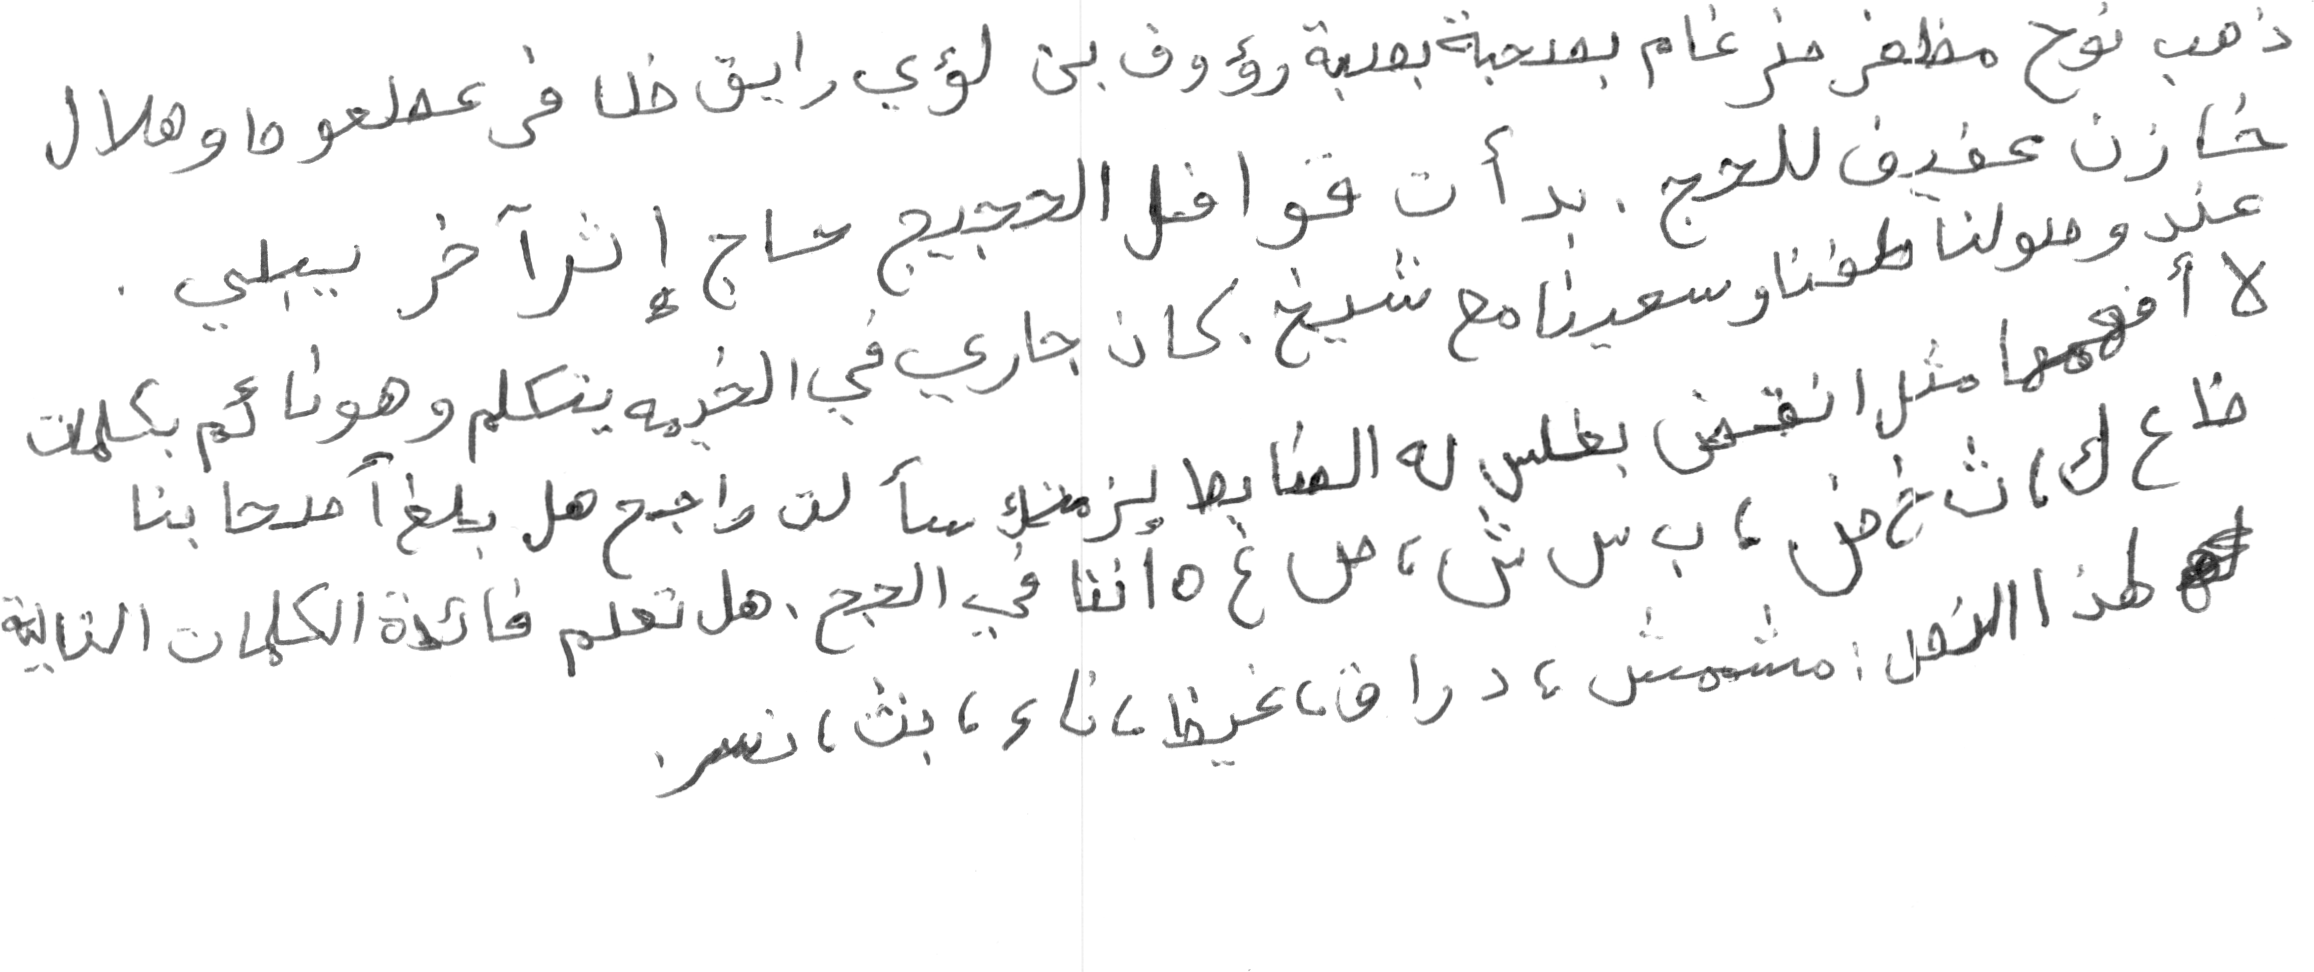 ذهب نوح مظفر ضرغام بصحبة بصحبة رؤوف بن لؤي رايق ظافر عطعوط وهلال
خازن عفيف للحج . بدأت قوافل الحجيج حاج إثر آخر يبلي .
عند وصولنا طفنا وسعينا مع شيخ . كان جاري في الخيمه يتكلم وهو نائم بكلمات
لا أفهمها مثل انقض بغلس له الضابط لزمنك سألت راجح هل بلغ أصحابنا
ظ ع ك ، ث غ ض ، ب س ش ، ص غ ه أننا في الحج . هل تعلم فائدة الكلمات التالية
لهذا النص : مشمش ، دراق ، غيظ ، ناء ، بنث ، نسر .